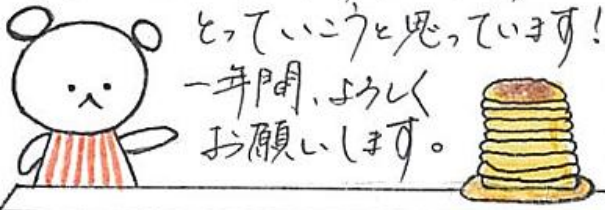 とっていこうと思っています！
一年間、よろしく
お願いします。